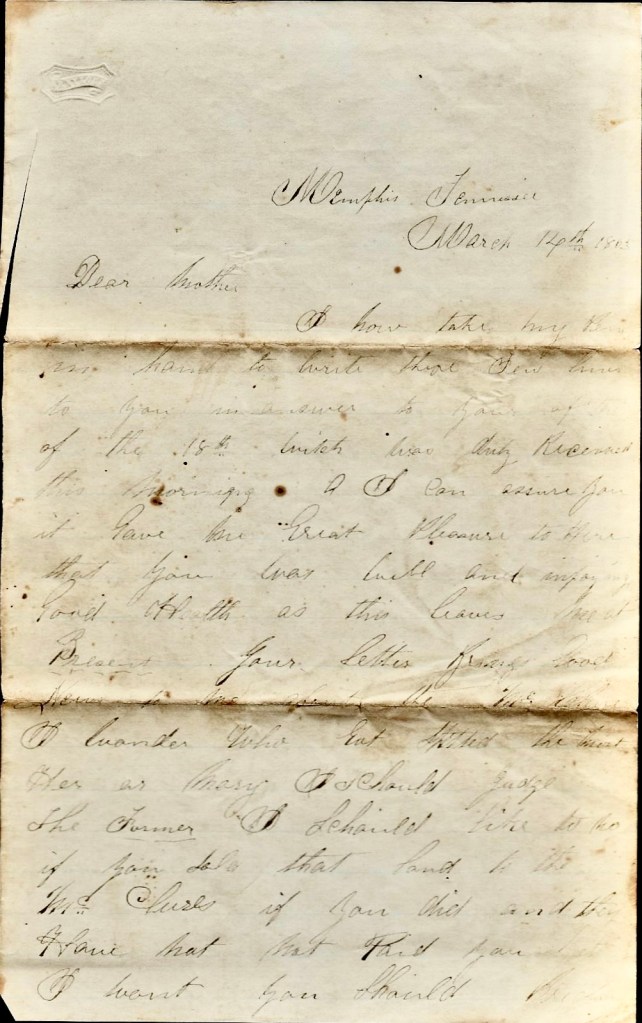 Memphis Tennessee
March 14th 1863
Dear Mother
I now take my Pen
in hand to write these Few lines
to you in answer to yours
of the 18th witch was duly Received
this Morning & I can assure you
it Gave me Great Pleasure to Here
that you was well and injoying
Good Health as this leaves me at
Present Your Letter Brings Good
News to me about
I wonder Who Got the
Her or Mary I Schould judge
the Former I Schould like to no
if you Sold that Land to the
Mc Clures if you did and they
Have not Paid you
I want you Should